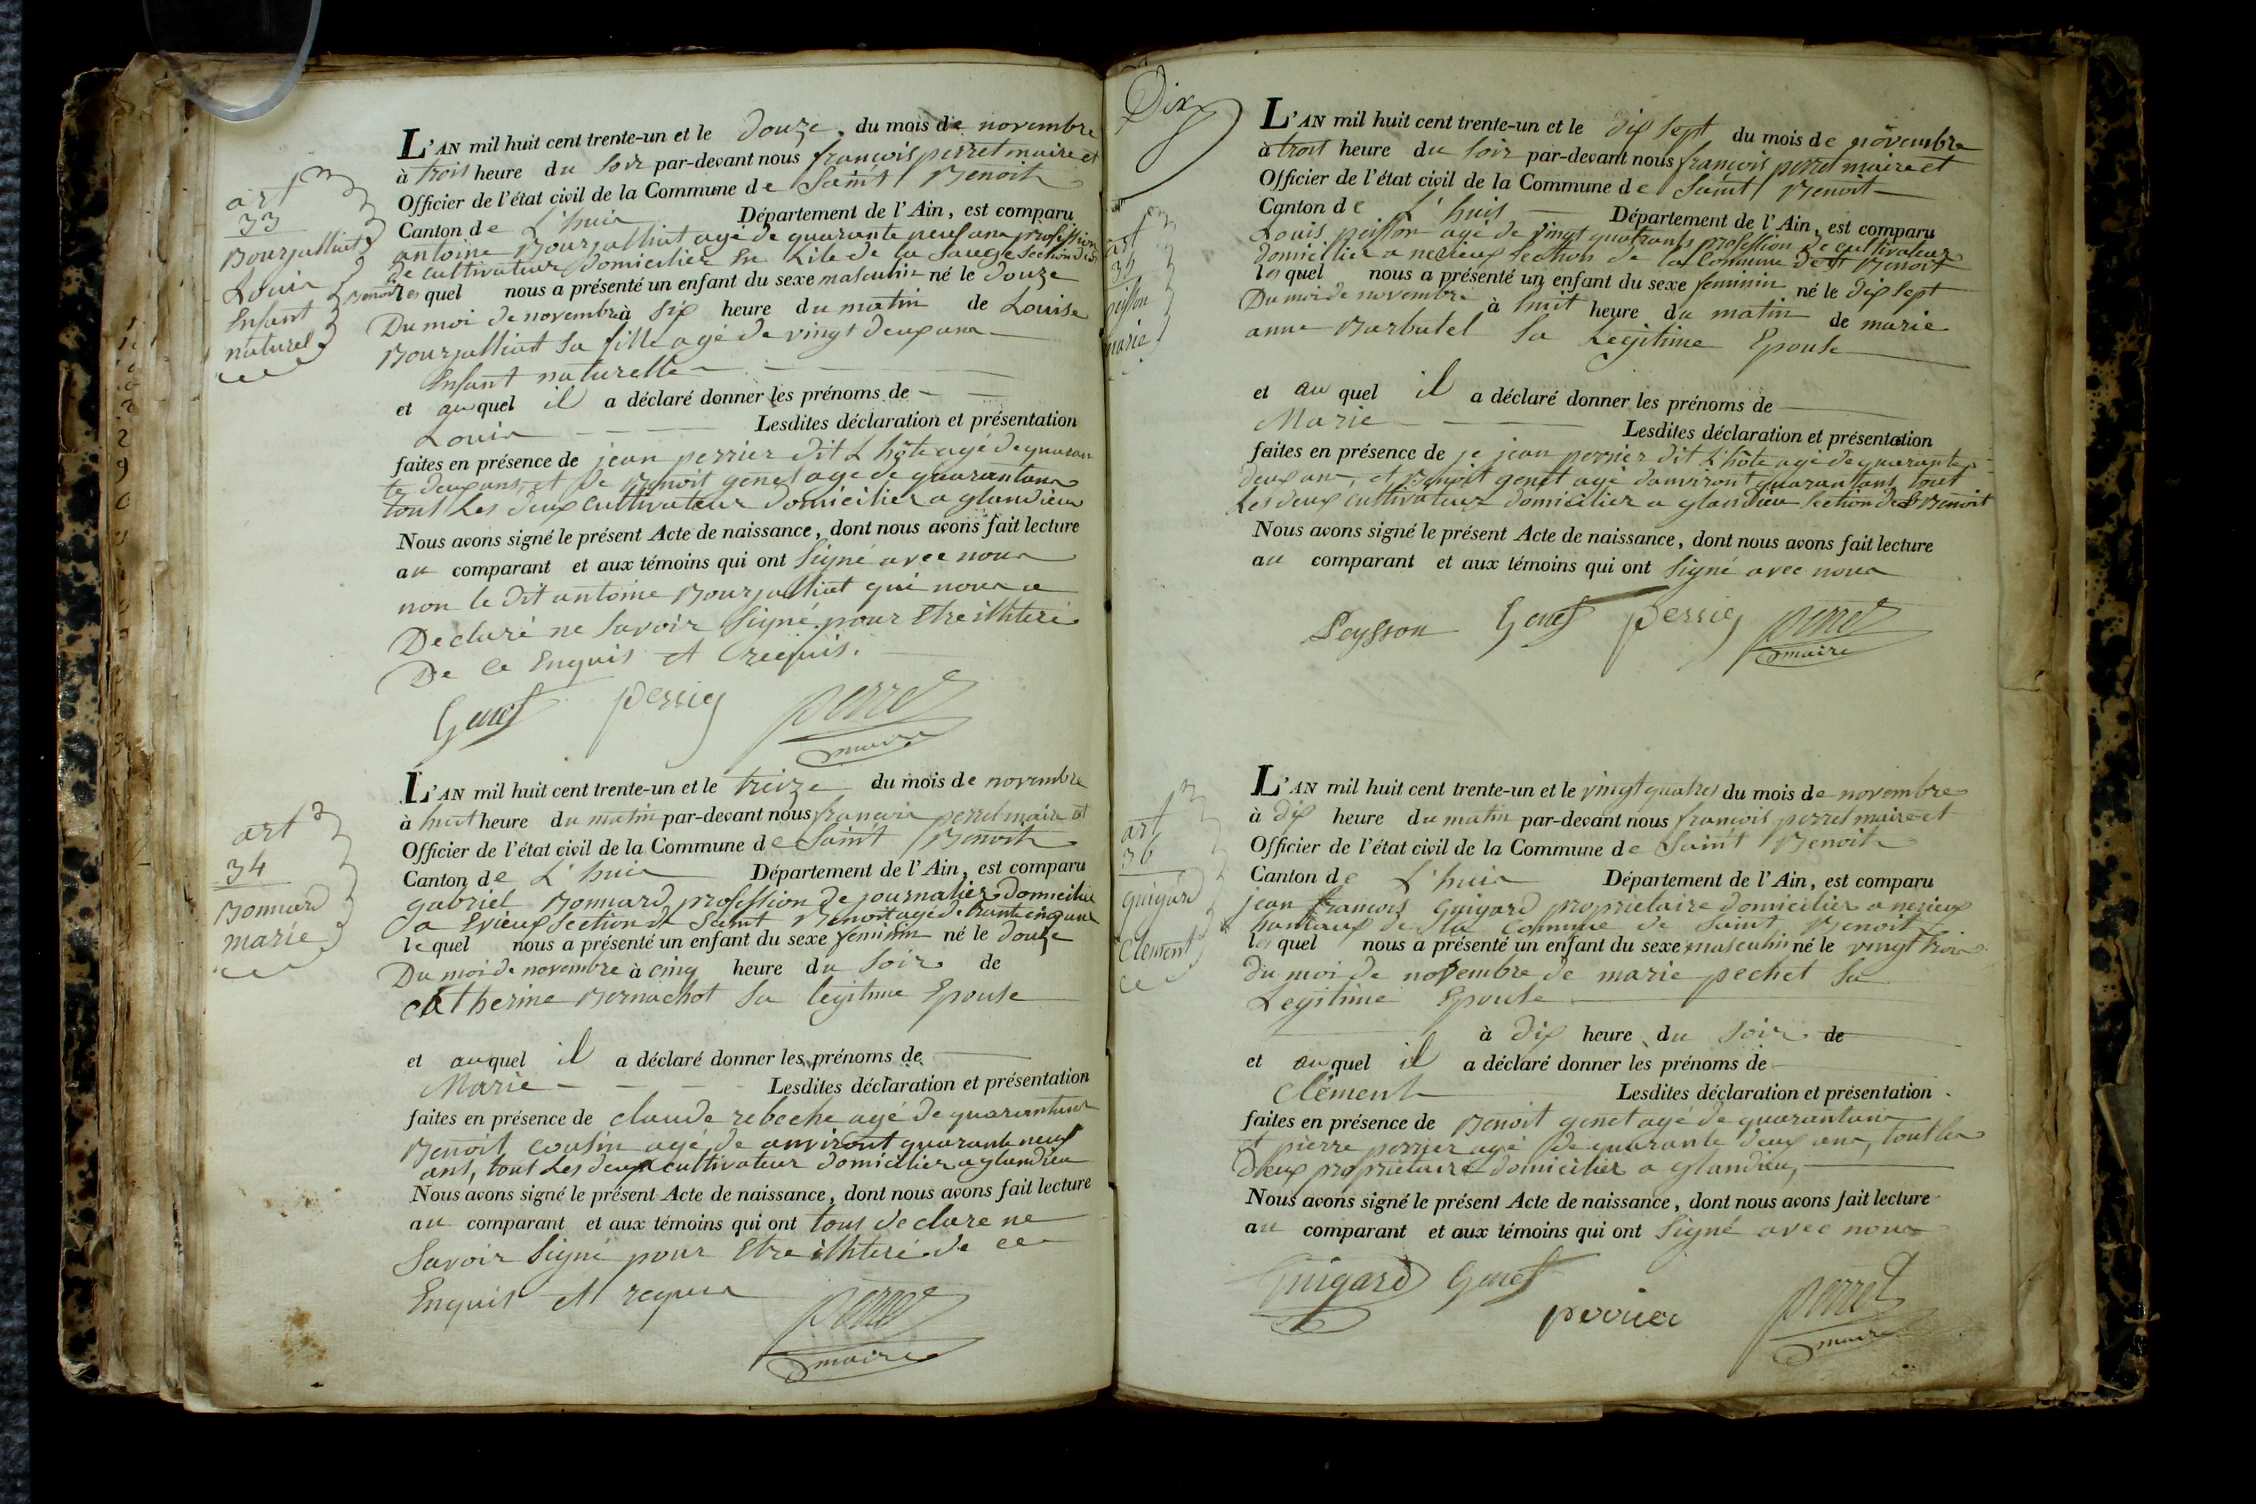 art
33
Bourjalliat
Louis
Enfant
naturel
L'AN mil huit cent trente-un et le douze, du mois de novembre
à trois heure du soir par-devant nous françois perret maire et
Officier de l'état civil de la Commune de Saint Benoit
Canton de L'huis Département de l'Ain, est comparu
antoine Bourjalliat agé de quarante neuf ans profession
de cultivateur domicilier en Lile de la Sauge Section de St
Benoit lesquel nous a présenté un enfant du sexe masculin né le douze
Du moi de novembre à six heure du matin de Louise
Bourjalliat sa fille agé de vingt deux ans
Enfant naturelle
et auquel il a déclaré donner les prénoms de
Louis Lesdites déclaration et présentation
faites en présence de jean perrier dit L'hôte agé de quaran
te deux ans, et de Benoit genet agé de quarantans
tout Les deux cultivateur domicilier a glandieu
Nous avons signé le présent Acte de naissance, dont nous avons fait lecture
au comparant et aux témoins qui ont signé avec nous
non le dit antoine Bourjalliat qui nous a
Declaré ne savoir signé pour Etre illiteré
De ce Enquis et requis.
Genet perrier perret
maire
art
34
Bonnard
marie
L'AN mil huit cent trente-un et le treize du mois de novembre
à huit heure du matin par-devant nous françois perret maire et
Officier de l'état civil de la Commune de Saint Benoit
Canton de L'huis Département de l'Ain, est comparu
gabriel Bonnard profession de journalier domicilié
a Evieux Section de Saint Benoit agé de trente cinq ans
lequel nous a présenté un enfant du sexe feminin né le douze
Du moi de novembre à cinq heure du soir de
catherine Bernachot sa legitime Epouse
et auquel il a déclaré donner les prénoms de
Marie Lesdites déclaration et présentation
faites en présence de claude rebeche agé de quarantans
Benoit cousin agé de anviront quarante neuf
ans, tout Les deux cultivateur domicilier a glandieu
Nous avons signé le présent Acte de naissance, dont nous avons fait lecture
au comparant et aux témoins qui ont tous declare ne
savoir signé pour Etre illiteré de ce
Enquis et requis
perret
maire
Dix
art
35
peisson
marie
L'AN mil huit cent trente-un et le dix sept du mois de novembre
à trois heure du soir par-devant nous françois perret maire et
Officier de l'état civil de la Commune de Saint Benoit
Canton de L'huis Département de l'Ain, est comparu
Louis peisson agé de vingt quatrants profession de cultivateur
domicillier a nerieux section de la Commune de St Benoit
lesquel nous a présenté un enfant du sexe feminin né le dix sept
Du moi de novembre à huit heure du matin de marie
anne Barbutel sa Legitime Epouse
et auquel il a déclaré donner les prénoms de
Marie Lesdites déclaration et présentation
faites en présence de je jean perrier dit L'hôte agé de quarante
deux ans, et Benoit genet agé d'anviront quarantans, tout
Les deux cultivateur domicilier a glandieu section de St Benoit
Nous avons signé le présent Acte de naissance, dont nous avons fait lecture
au comparant et aux témoins qui ont signé avec nous
Peysson Genet perrier perret
maire
art
36
guigard
Clement
L'AN mil huit cent trente-un et le vingt quatres du mois de novembre
à dix heure du matin par-devant nous françois perret maire et
Officier de l'état civil de la Commune de Saint Benoit
Canton de L'huis Département de l'Ain, est comparu
jean françois Guigard proprietaire domicilier a nerieux
hameaux de la Commune de Saint Benoit
lesquel nous a présenté un enfant du sexe masculin né le vingt trois
du moi de novembre de marie pechet sa
Legitime Epouse
à dix heure du soir de
et auquel il a déclaré donner les prénoms de
Clément Lesdites déclaration et présentation
faites en présence de Benoit genet agé de quarantans
et pierre perrier agé de quarante deux ans, tout les
Deux proprietaire domicilier a glandieu,
Nous avons signé le présent Acte de naissance, dont nous avons fait lecture
au comparant et aux témoins qui ont signé avec nous
Guigard Genet
perrier perret
maire